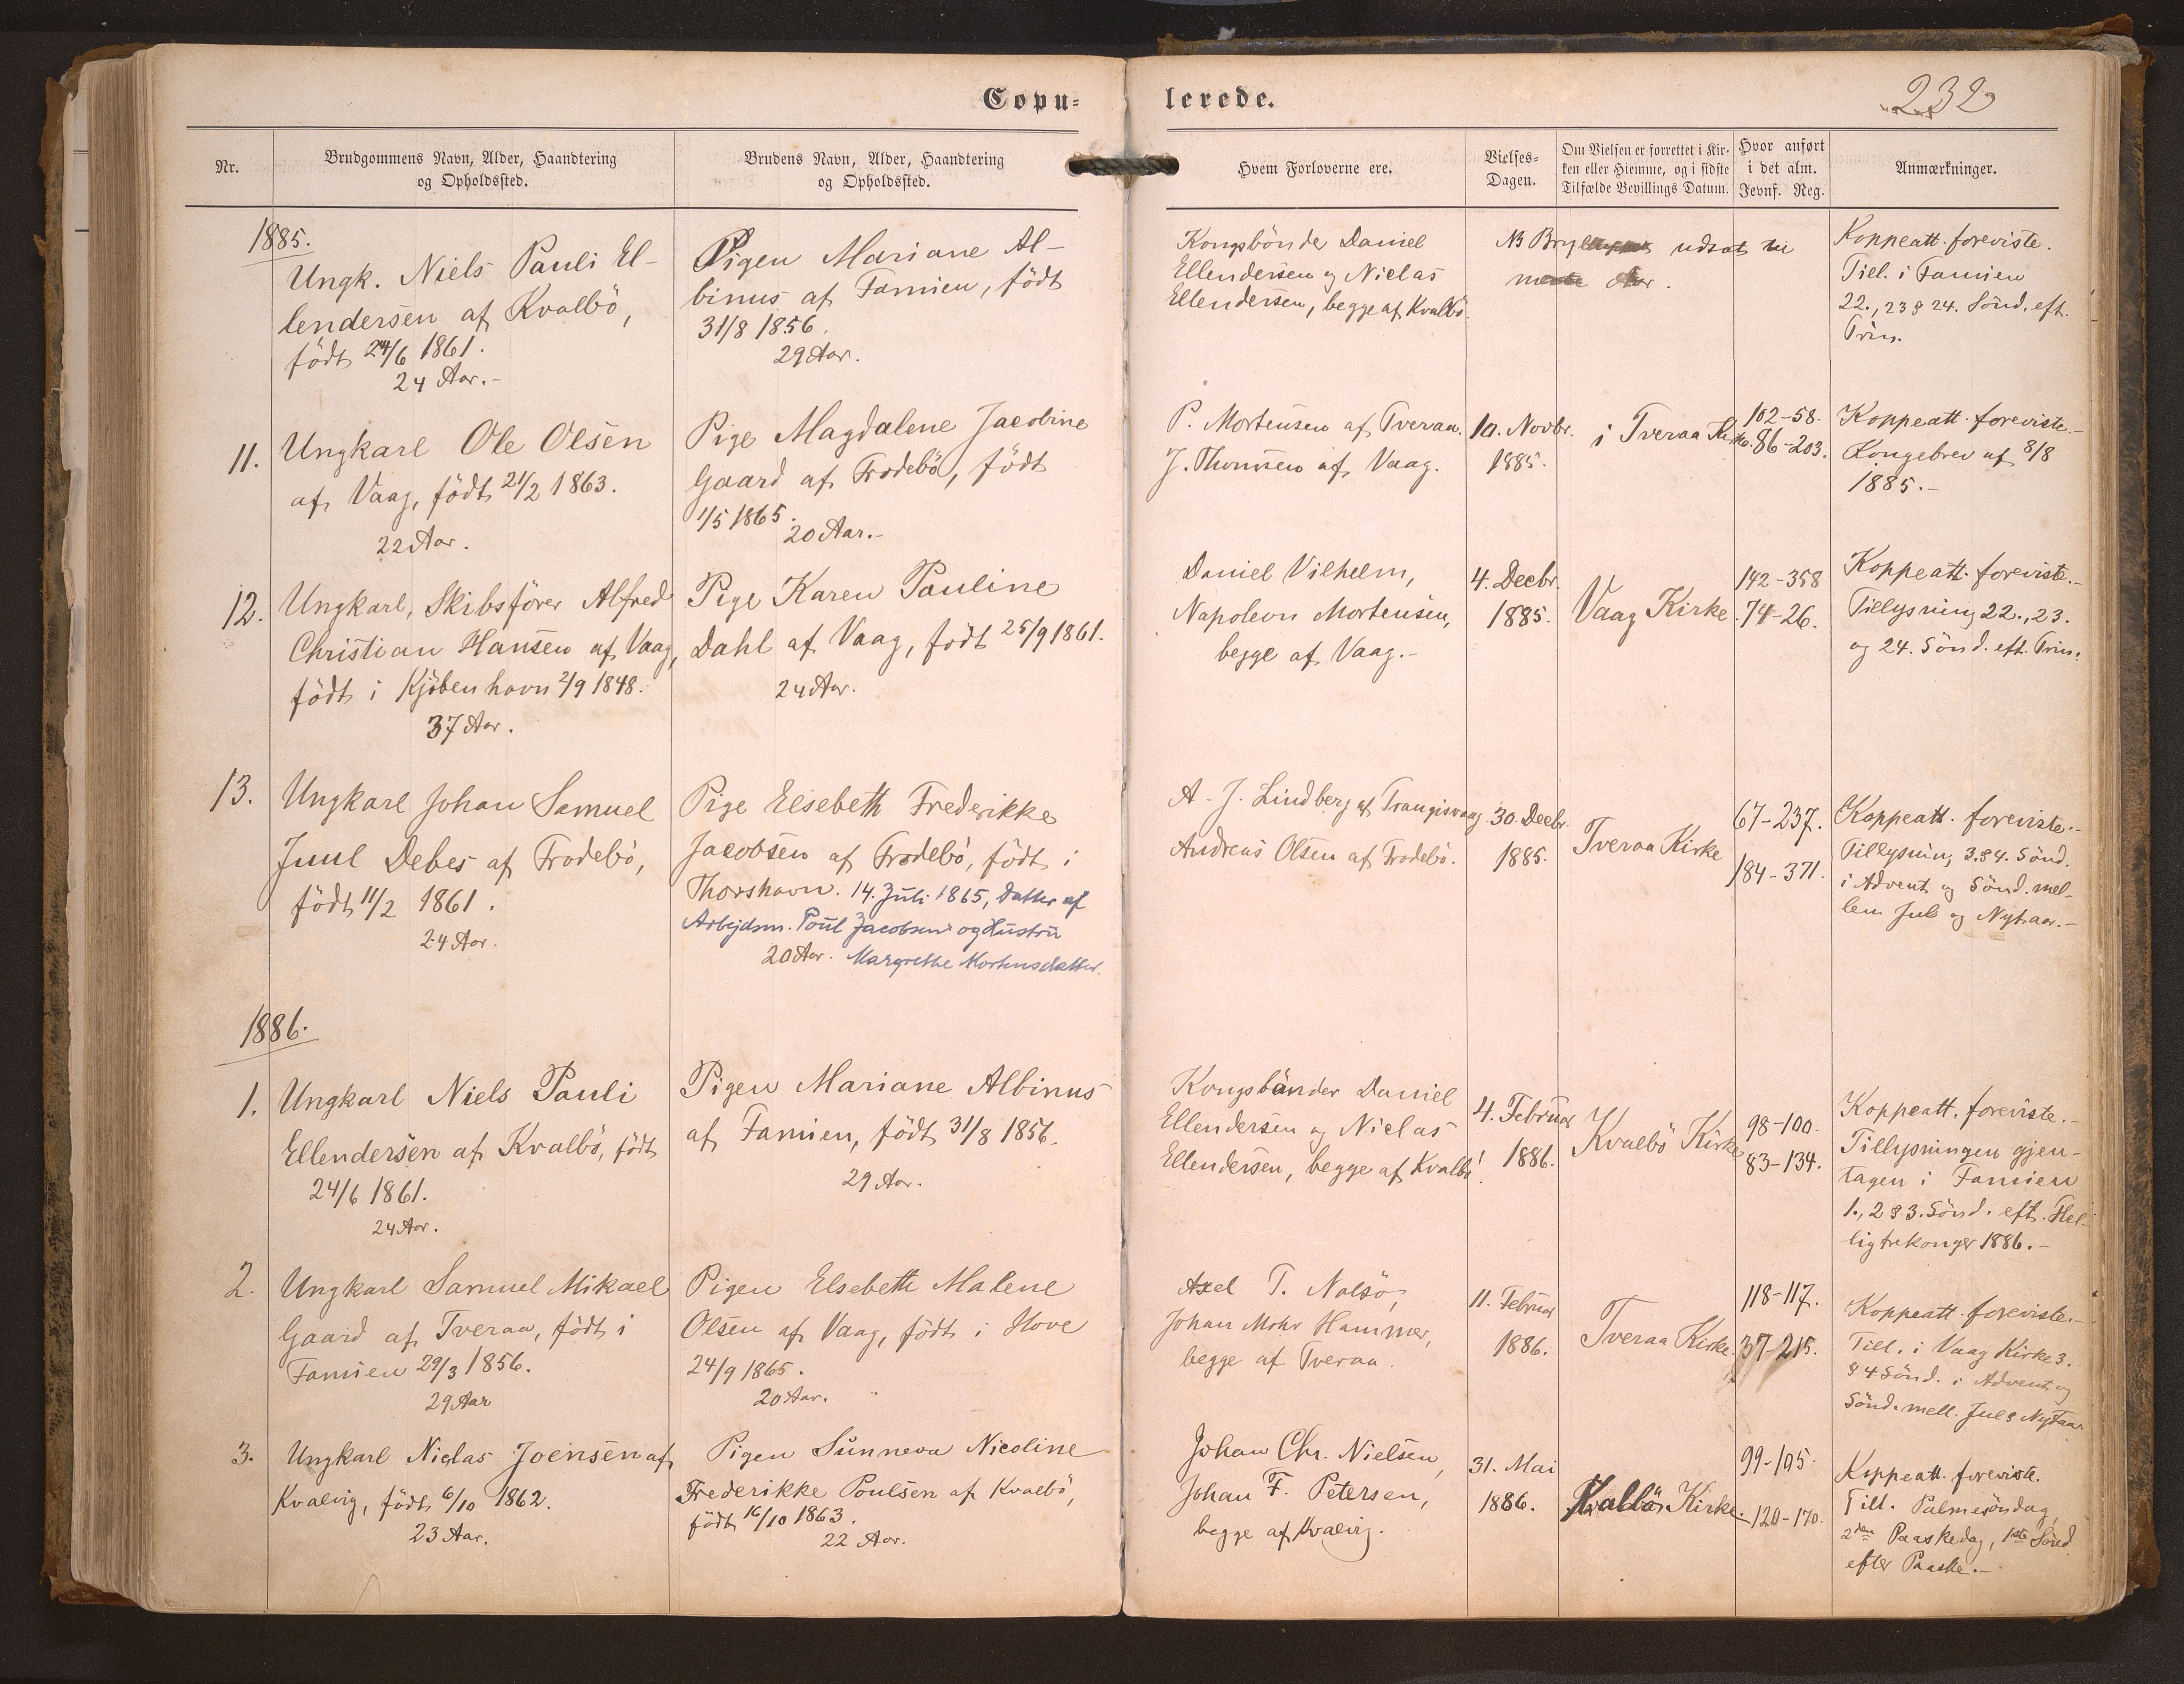 Copu-
lerede.
232
Nr.
Brudgommens Navn, Alder, Haandtering
og Opholdssted.
Brudens Navn, Alder, Haandtering
og Opholdssted.
Hvem Forloverne ere.
Vielses-
Dagen.
Om Vielsen er forrettet i Kir-
ken eller Hiemme, og i sidste
Tilfælde Bevillings Datum.
Hvor anført
i det alm.
Jevnf. Reg.
Anmærkninger.
1885.
Ungk. Niels Pauli El-
lendersen af Kvalbö,
födt 24/6 1861.
24 Aar.-
Pigen Mariane Al-
binus af Famien, födt
31/8 1856.
29 Aar.
Kongsbönder Daniel
Ellendersen og Niclas
Ellendersen, begge af Kvalbö
NB Bryllupet udsat til
næste Aar.
Koppeatt. foreviste.
Till. i Famien
22., 23 & 24. Sönd. eft.
Trin.
11.
Ungkarl Ole Olsen
af Vaag, födt 21/2 1863.
22 Aar.
Pige Magdalene Jacobine
Gaard af Frodebö, födt
1/5 1865.
20 Aar.-
P. Mortensen af Tveraa.
J. Thomsen af Vaag.
10. Novbr.
1885.
i Tveraa Kirke.
102-58.
86-203.
Koppeatt. foreviste.-
Kongebrev af 8/8
1885.-
12.
Ungkarl, Skibsförer Alfred
Christian Hansen af Vaag,
födt i Kjöbenhavn 2/9 1848.
37 Aar.
Pige Karen Pauline
Dahl af Vaag, födt 25/9 1861.
24 Aar.
Daniel Vilhelm,
Napoleon Mortensen,
begge af Vaag.-
4. Decbr.
1885.
Vaag Kirke.
142-358
74-26.
Koppeatt. foreviste.-
Tillysning 22., 23.
og 24. Sönd. eft. Trin.
13.
Ungkarl Johan Samuel
Juul Debes af Frodebö,
födt 11/2 1861.
24 Aar.
Pige Elsebeth Frederikke
Jacobsen af Frodebö, födt i
Thorshavn. 14. Juli 1865, Datter af
Arbejdsm. Poul Jacobsen og Hustru
20 Aar. Margrethe Mortensdatter.
A. J. Lindberg af Trangisvaag
Andreas Olsen af Frodebö.
30. Decbr.
1885.
Tveraa Kirke
67-237.
184-371.
Koppeatt. foreviste.-
Tillysning 3. & 4. Sönd.
i Advent og Sönd. mel-
lem Jul og Nytaar.-
1886.
1.
Ungkarl Niels Pauli
Ellendersen af Kvalbö, födt
24/6 1861.
24 Aar.
Pigen Mariane Albinus
af Famien, födt 31/8 1856.
29 Aar.
Kongsbönder Daniel
Ellendersen og Niclas
Ellendersen, begge af Kvalbö.
4. Februar
1886.
Kvalbö Kirke
98-100.
83-134.
Koppeatt. foreviste.-
Tillysningen gjen-
tagen i Famien
1., 2 & 3. Sönd. eft. Hel-
ligtrekonger 1886.-
2.
Ungkarl Samuel Mikael
Gaard af Tveraa, födt i
Famien 29/3 1856.
29 Aar
Pigen Elsebeth Malene
Olsen af Vaag, födt i Hove
24/9 1865.
20 Aar.
Axel T. Nolsö,
Johan Mohr Hammer,
begge af Tveraa.
11. Februar
1886.
Tveraa Kirke.
118-117.
37-215.
Koppeatt. foreviste.-
Till. i Vaag Kirke 3.
& 4 Sönd. i Advent og
Sönd. mell. Jul & Nytaar.
3.
Ungkarl Niclas Joensen af
Kvalvig, födt 6/10 1862.
23 Aar.
Pigen Sunneva Nicoline
Frederikke Poulsen af Kvalbö,
födt 16/10 1863.
22 Aar.
Johan Chr. Nielsen,
Johan F. Petersen,
begge af Kvalvig.
31. Mai
1886.
Kvalbö Kirke.
99-105.
120-170.
Koppeatt. foreviste.
Till. Palmesöndag,
2den Paaskedag, 1ste Sönd.
efter Paaske.-